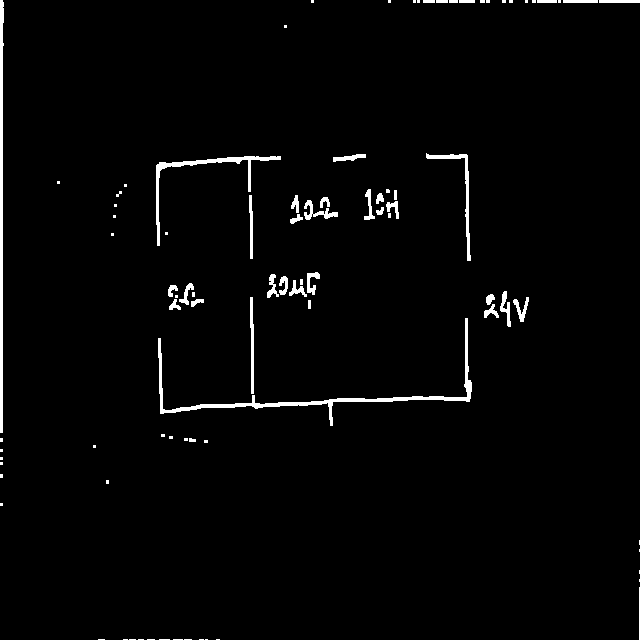 10Ω 10H
2Ω 20μF
24V